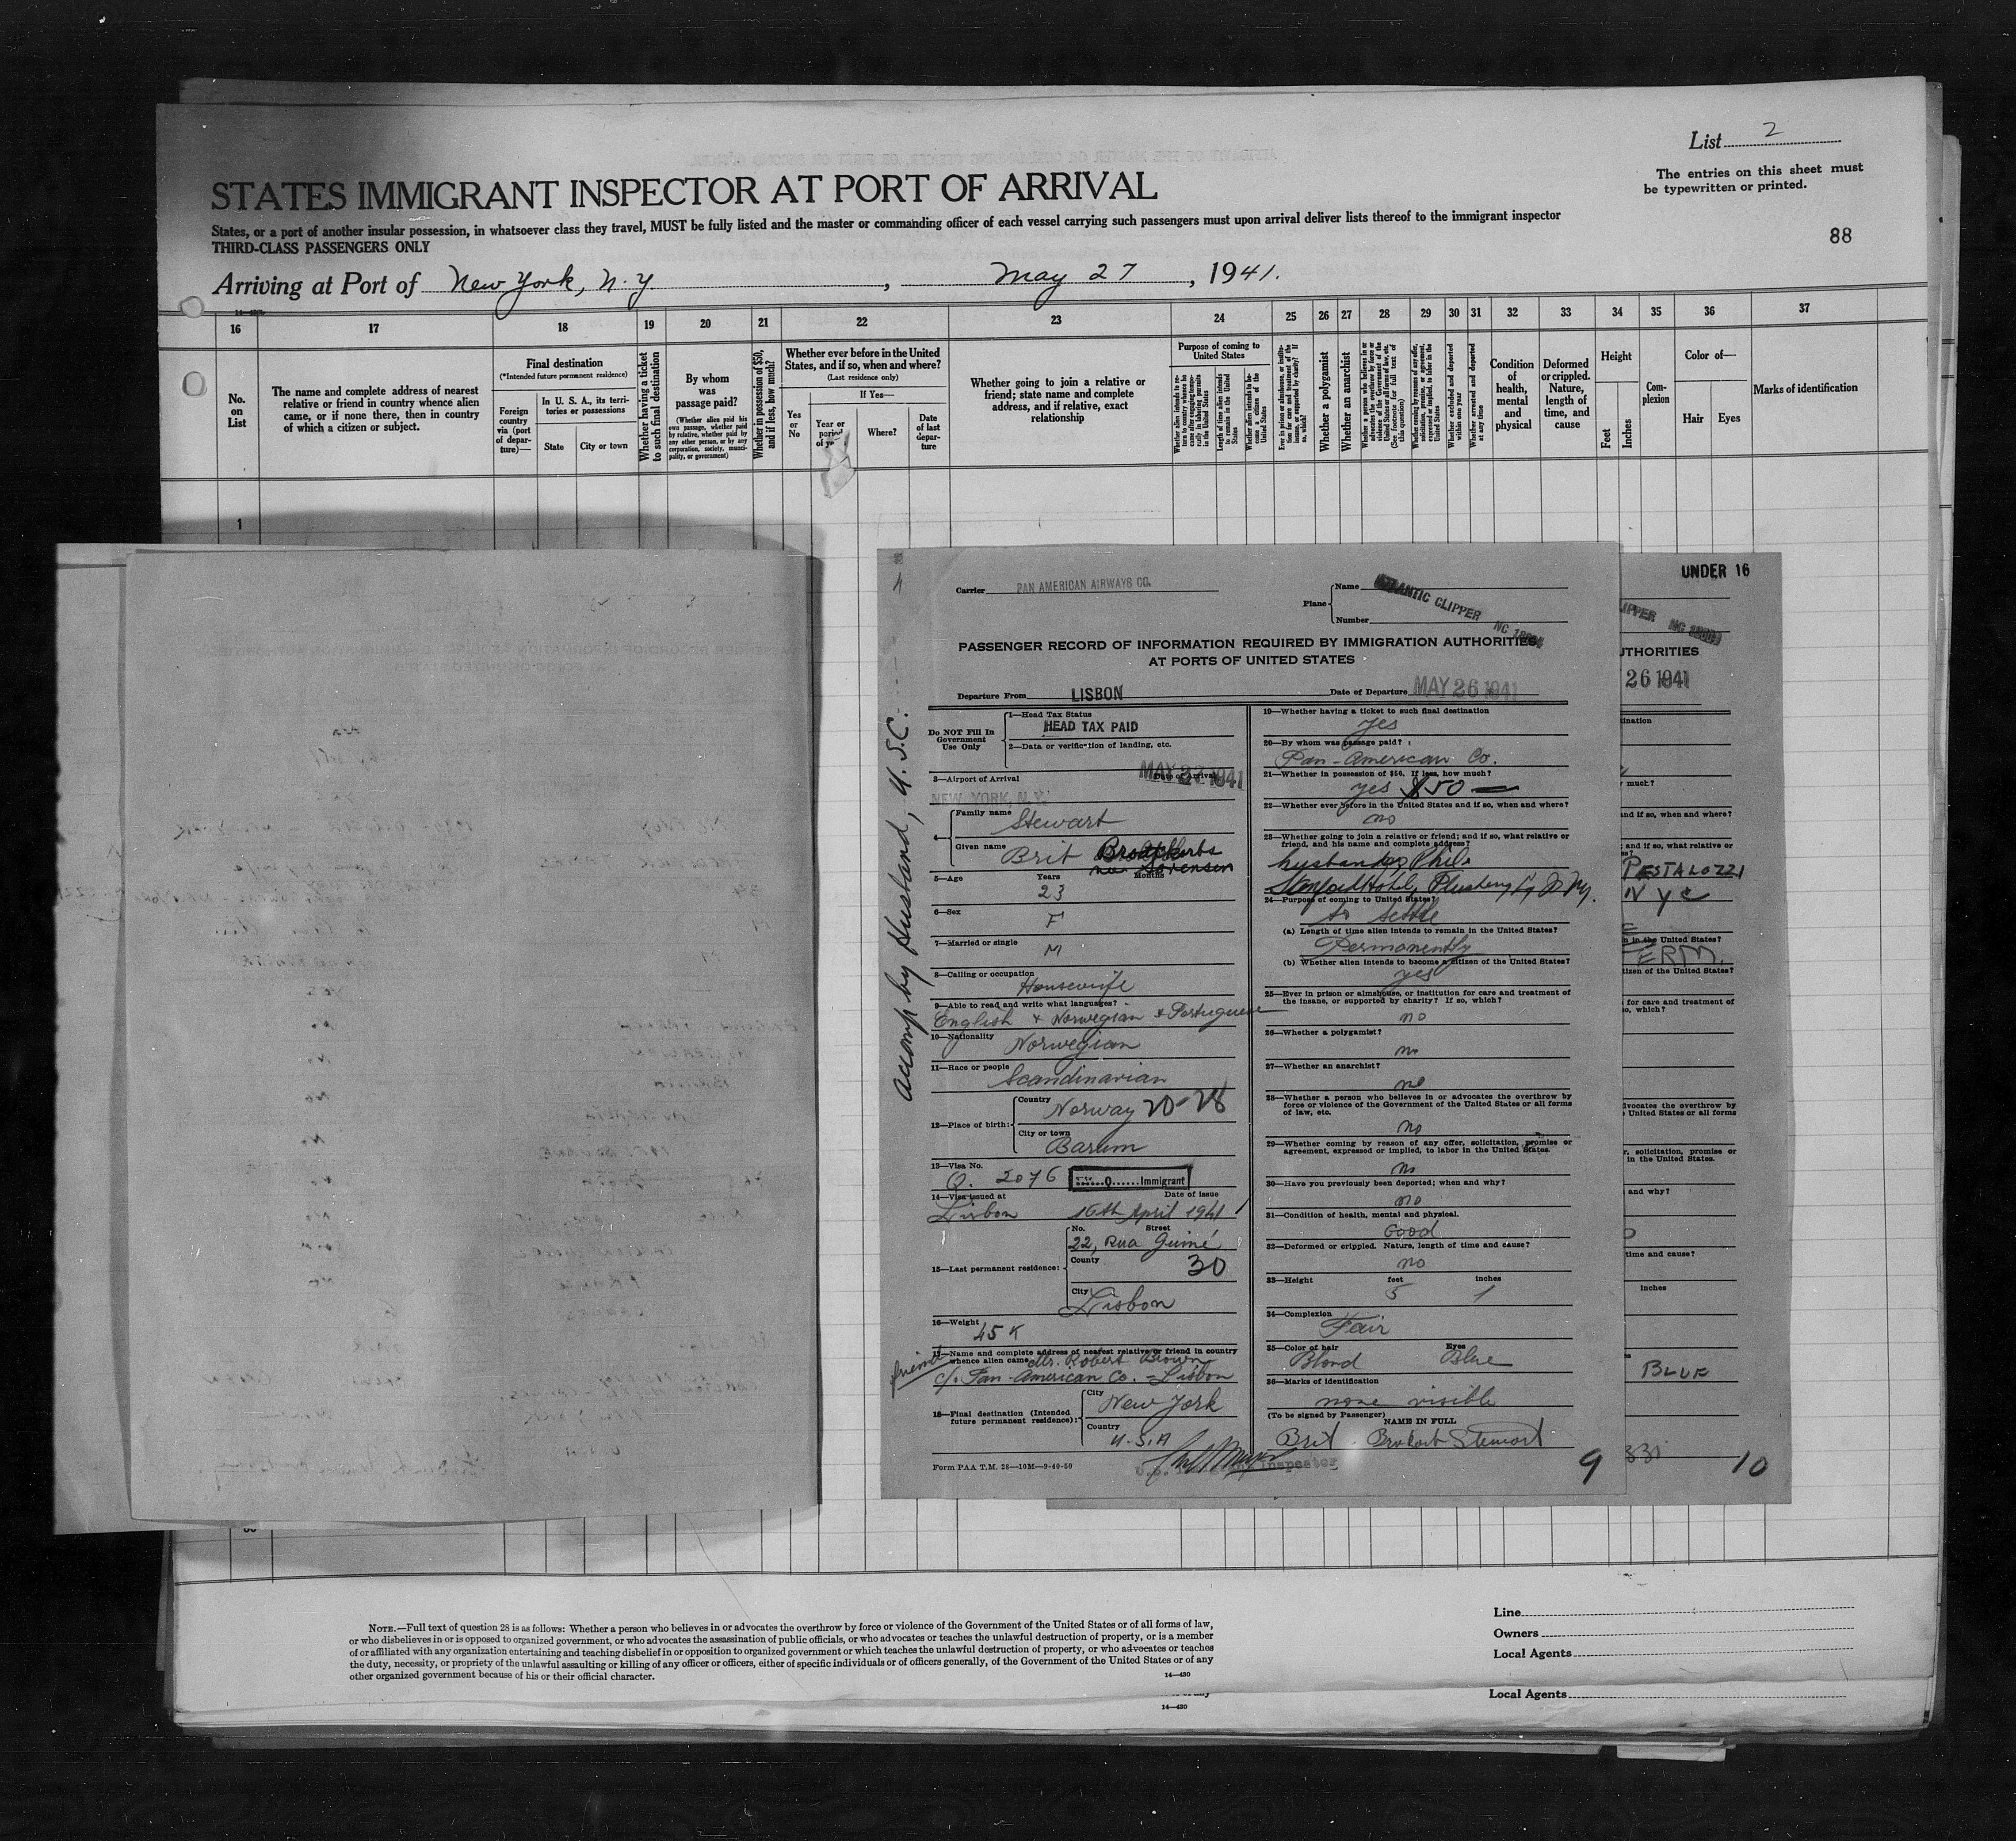 List 2
The entries on this sheet must
be typewritten or printed.
STATES IMMIGRANT INSPECTOR AT PORT OF ARRIVAL
States, or a port of another insular possession, in whatsoever class they travel, MUST be fully listed and the master or commanding officer of each vessel carrying such passengers must upon arrival deliver lists thereof to the immigrant inspector
THIRD-CLASS PASSENGERS ONLY
88
Arriving at Port of New York, N.Y, May 27, 1941.
16 17 18 19 20 21 22 23 24 25 26 27 28 29 30 31 32 33 34 35 36 37
No.
on
List
The name and complete address of nearest
relative or friend in country whence alien
came, or if none there, then in country
of which a citizen or subject.
Final destination
(*Intended future permanent residence)
Foreign
country
via (port
of depar-
ture)—
In U. S. A., its terri-
tories or possessions
State
City or town
Whether having a ticket
to such final destination
By whom
was
passage paid?
(Whether alien paid his
own passage, whether paid
by relative, whether paid by
any other person, or by any
corporation, society, munici-
pality, or government)
Whether in possession of $50,
and if less, how much?
Whether ever before in the United
States, and if so, when and where?
(Last residence only)
If Yes—
Yes
or
No
Year or
period
of
Where?
Date
of last
depar-
ture
Whether going to join a relative or
friend; state name and complete
address, and if relative, exact
relationship
Purpose of coming to
United States
Whether alien intends to re-
turn to country whence he
came after engaging tempo-
rarily in laboring pursuits
in the United States
Length of time alien intends
to remain in the United
States
Whether alien intends to be-
come a citizen of the
United States
Ever in prison or almshouse, or institu-
tion for care and treatment of the
insane, or supported by charity? If
so, which?
Whether a polygamist
Whether an anarchist
Whether a person who believes in or
advocates the overthrow by force or
violence of the Government of the
United States or all forms of law, etc.
(See footnote for full text of
this question)
Whether coming by reason of any offer,
solicitation, promise, or agreement,
expressed or implied, to labor in the
United States
Whether excluded and deported
within one year
Whether arrested and deported
at any time
Condition
of
health,
mental
and
physical
Deformed
or crippled.
Nature,
length of
time, and
cause
Height
Feet
Inches
Com-
plexion
Color of—
Hair
Eyes
Marks of identification
1
UNDER 16
Carrier PAN AMERICAN AIRWAYS CO.
Plane Name ATLANTIC CLIPPER
Number NC
PASSENGER RECORD OF INFORMATION REQUIRED BY IMMIGRATION AUTHORITIES
AT PORTS OF UNITED STATES
Departure From LISBON
Date of Departure MAY 26 1941
accomp by Husband, U.S.C.
Do NOT Fill In
Government
Use Only
1—Head Tax Status
HEAD TAX PAID
2—Data or verification of landing, etc.
3—Airport of Arrival
Date of Arrival
MAY 27 1941
NEW YORK, N.Y.
4—
Family name
Stewart
Given name
Brit
née Sorensen
5—Age
Years
Months
23
6—Sex
F
7—Married or single
M
8—Calling or occupation
Housewife
9—Able to read and write what languages?
English & Norwegian & Portuguese
10—Nationality
Norwegian
11—Race or people
Scandinavian
12—Place of birth:
Country
Norway 20-28
City or town
Barum
13—Visa No.
Q. 2076
Q Immigrant
14—Visa issued at
Date of issue
Lisbon 16th April 1941
15—Last permanent residence:
No. Street
22, Rua Guiné
County
30
City
Lisbon
16—Weight
45 K
17—Name and complete address of nearest relative or friend in country
whence alien came Mr. Robert Brown
friend
c/. Pan-American Co. - Lisbon
18—Final destination (Intended
future permanent residence):
City
New York
Country
U.S.A
Form PAA T.M. 28—10M—9-40-50
Inspector
19—Whether having a ticket to such final destination
yes
20—By whom was passage paid?
Pan-American Co.
21—Whether in possession of $50. If less, how much?
yes $50 —
22—Whether ever before in the United States and if so, when and where?
no
23—Whether going to join a relative or friend; and if so, what relative or
friend, and his name and complete address?
husband, Phil.
Hotel, Flushing
24—Purpose of coming to United States?
to settle
(a) Length of time alien intends to remain in the United States?
Permanently
(b) Whether alien intends to become a citizen of the United States?
yes
25—Ever in prison or almshouse, or institution for care and treatment of
the insane, or supported by charity? If so, which?
no
26—Whether a polygamist?
no
27—Whether an anarchist?
no
28—Whether a person who believes in or advocates the overthrow by
force or violence of the Government of the United States or all forms
of law, etc.
no
29—Whether coming by reason of any offer, solicitation, promise or
agreement, expressed or implied, to labor in the United States.
no
30—Have you previously been deported; when and why?
no
31—Condition of health, mental and physical.
Good
32—Deformed or crippled. Nature, length of time and cause?
no
33—Height
feet
inches
5 1
34—Complexion
Fair
35—Color of hair
Eyes
Blond Blue
36—Marks of identification
none visible
(To be signed by Passenger)
NAME IN FULL
Brit Stewart
9
UTHORITIES
26 1941
PESTALOZZI
N Y C
PERM.
inches
BLUE
331
10
NOTE.—Full text of question 28 is as follows: Whether a person who believes in or advocates the overthrow by force or violence of the Government of the United States or of all forms of law,
or who disbelieves in or is opposed to organized government, or who advocates the assassination of public officials, or who advocates or teaches the unlawful destruction of property, or is a member
of or affiliated with any organization entertaining and teaching disbelief in or opposition to organized government or which teaches the unlawful destruction of property, or who advocates or teaches
the duty, necessity, or propriety of the unlawful assaulting or killing of any officer or officers, either of specific individuals or of officers generally, of the Government of the United States or of any
other organized government because of his or their official character.
14—430
14—430
Line
Owners
Local Agents
Local Agents